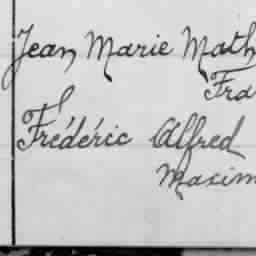 Jean Marie Math
Fra
Frédéric Alfred
Maxim